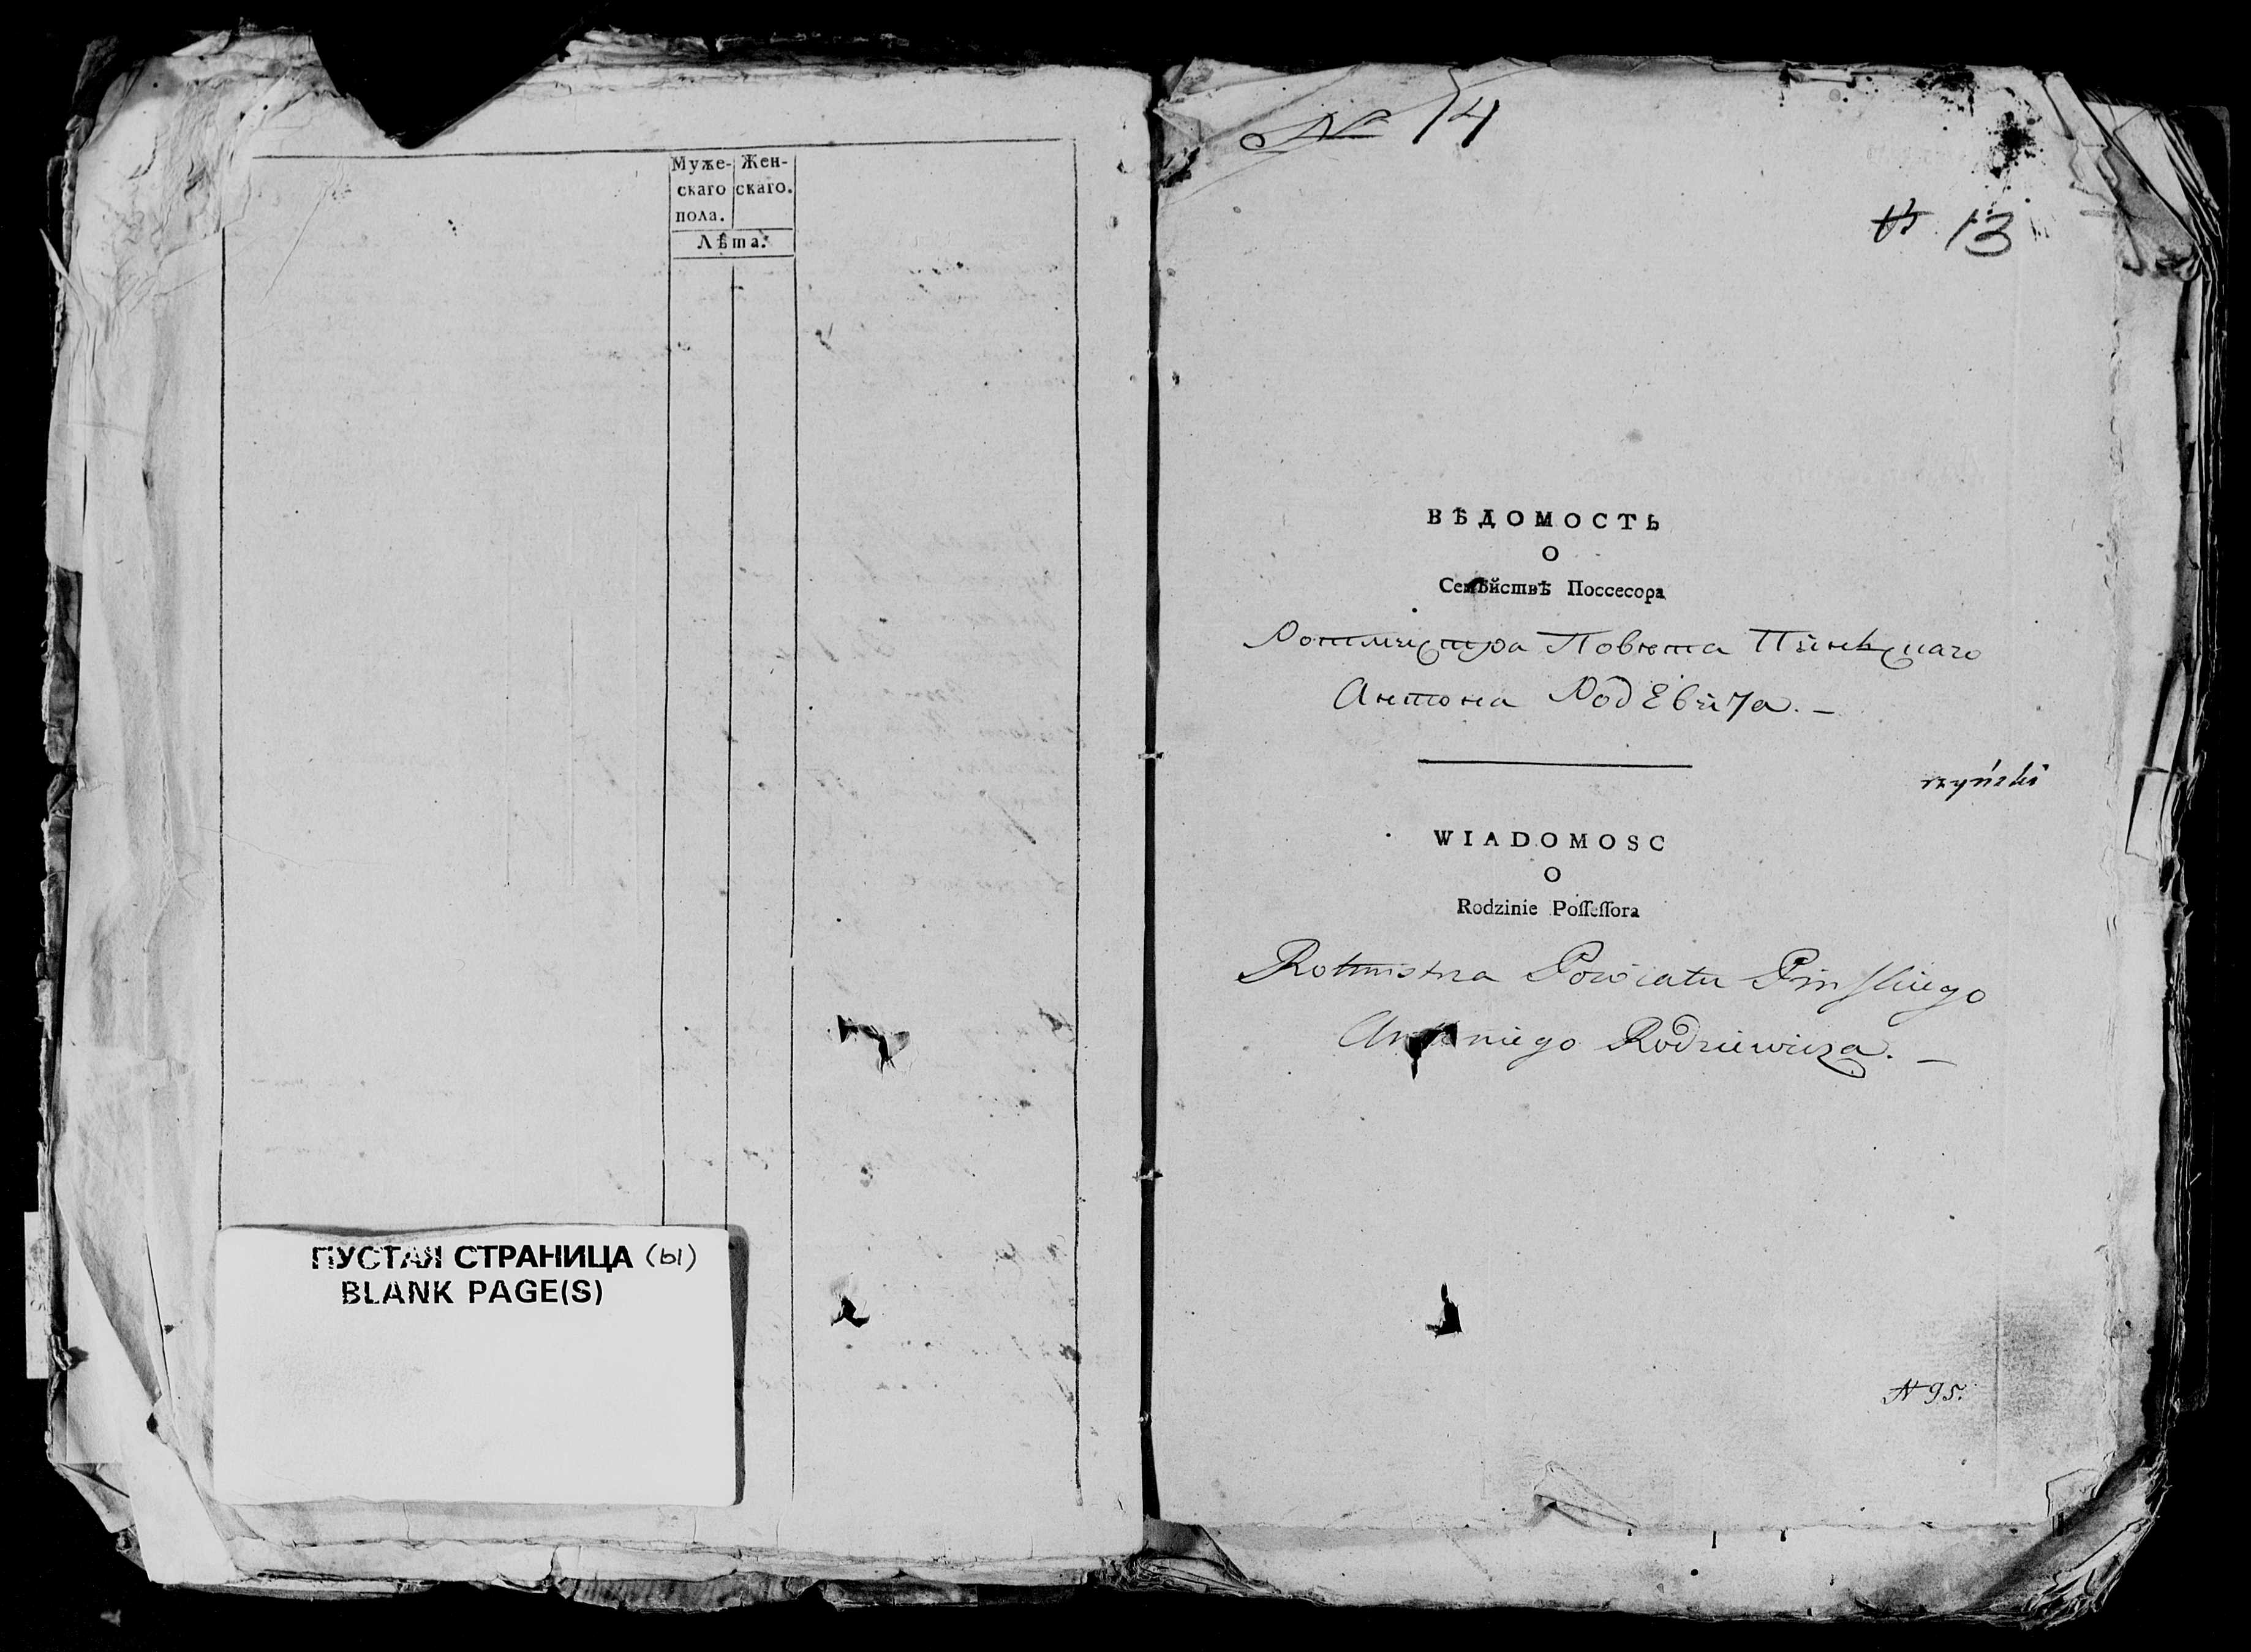 Муже- Жен-
скаго скаго.
пола.
Лѣта.
ПУСТАЯ СТРАНИЦА (ы)
BLANK PAGE(S)
№ 14
13
ВѢДОМОСТЬ
О
Семѣйствѣ Поссесора
Ротмистра Повета Пинскаго
Антона Родевича. –
rzyński
WIADOMOSC
O
Rodzinie Poſſeſſora
Rotmistrza Powiatu Pinſkiego
Antoniego Rodziewicza. –
N 95.